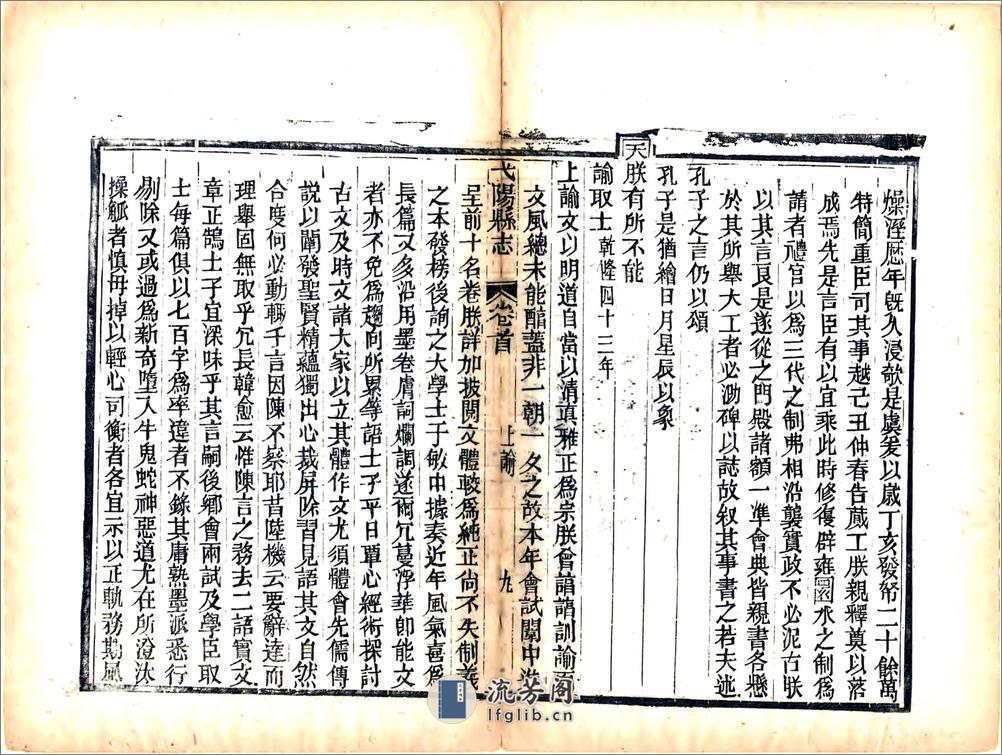 燥溼歷年旣久浸欹是虞爰以歲丁亥發帑二十餘萬
特簡重臣司其事越己丑仲春告蕆工朕親釋奠以落
成焉先是言臣有以宜乘此時修復辟雍圜水之制爲
請者禮官以爲三代之制弗相沿襲實政不必泥古朕
以其言良是遂從之門殿諸額一準會典皆親書各懸
於其所舉大工者必泐碑以誌故叙其事書之若夫述
孔子之言仍以頌
孔子是猶繪日月星辰以象
天朕有所不能
諭取士乾隆四十三年
上諭文以明道自當以清眞雅正爲宗朕曾諳諳訓諭而
文風總未能醕蓋非一朝一夕之故本年會試闈中進
弋陽縣志 卷首 上諭 九
呈前十名卷朕詳加披閱文體較爲純正尙不失制義
之本發榜後詢之大學士于敏中據奏近年風氣喜爲
長篇又多沿用墨卷膚詞爛調遂爾冗蔓浮華卽能文
者亦不免爲趨向所累等語士子平日單心經術探討
古文及時文諸大家以立其體作文尤須體會先儒傳
說以闡發聖賢精蘊獨出心裁屏除習見語其文自然
合度何必動輙千言因陳不察耶昔陸機云要辭達而
理舉固無取乎冗長韓愈云惟陳言之務去二語實文
章正鵠士子宜深味乎其言嗣後鄉會兩試及學臣取
士每篇俱以七百字爲率違者不錄其庸熟墨派悉行
剔除又或過爲新奇墮入牛鬼蛇神惡道尤在所澄汰
操觚者愼毋掉以輕心司衡者各宜示以正軌務期風
流芳阁
lfglib.cn